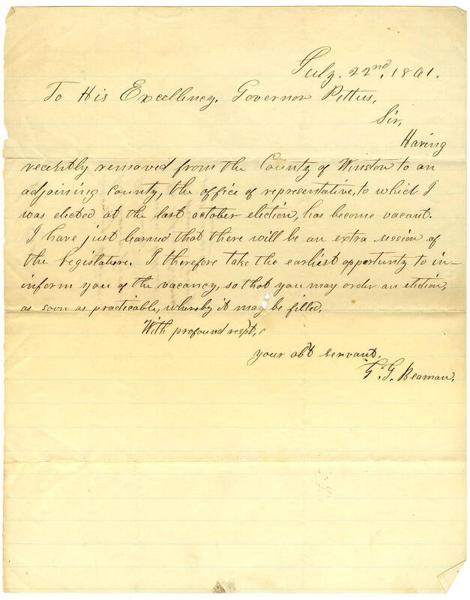 July. 22nd, 1861.
To His Excellency, Governor Pettus,
Sir,
Having
recently removed from the County of Winston to an
adjoining County, the office of representative, to which I
was elected at the last october election, has become vacant.
I have just learned that there will be an extra session of
the Legislature. I therefore take the earliest opportunity to in-
inform you of the vacancy, so that you may order an election,
as soon as practicable, whereby it may be filled,
With profound respt,
your obt servant,
G. Beaman.